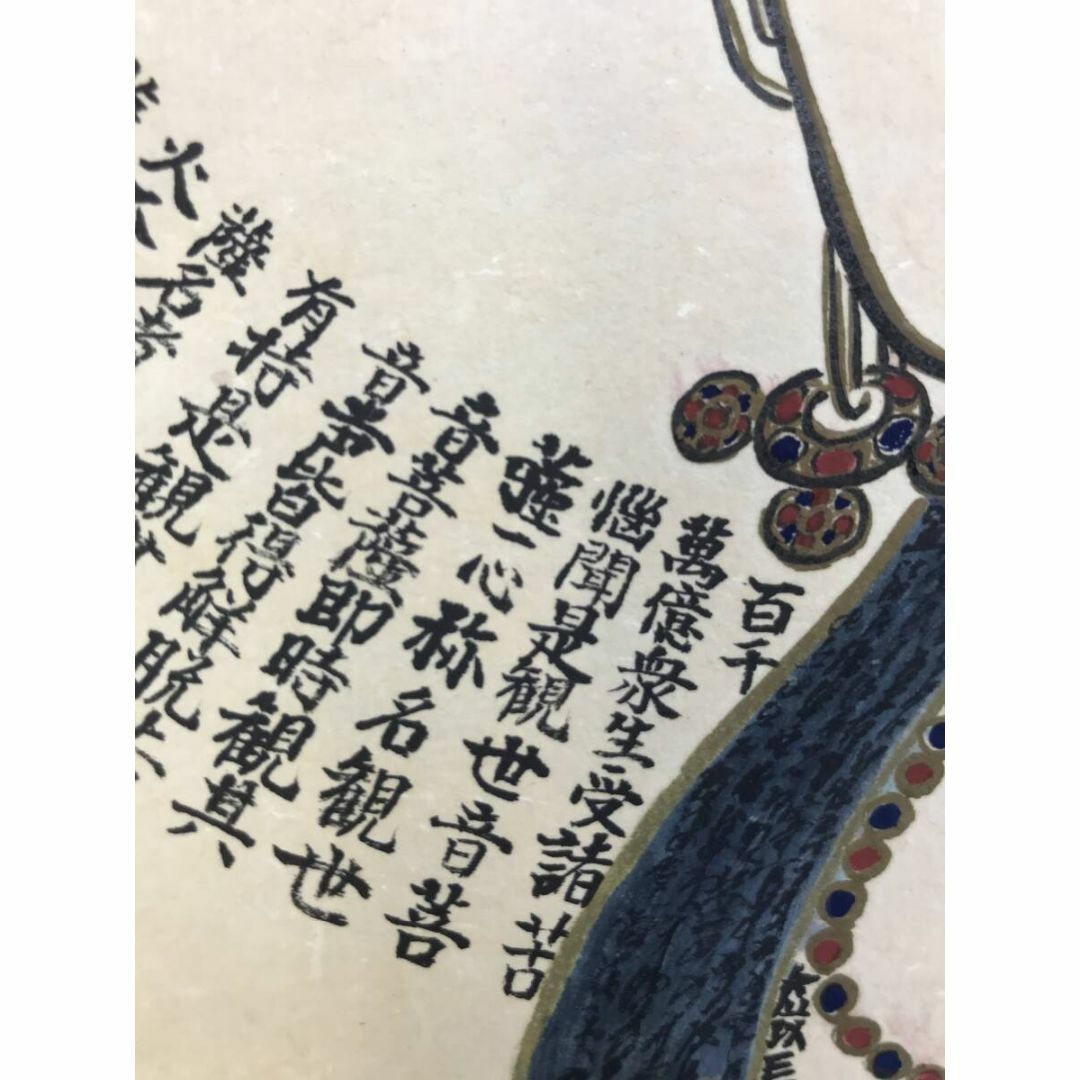 百千
萬億衆生受諸苦
惱聞是観世音菩
薩一心称名観世
音菩薩即時観其
音声皆得解脱
有持是観
薩名者
火不